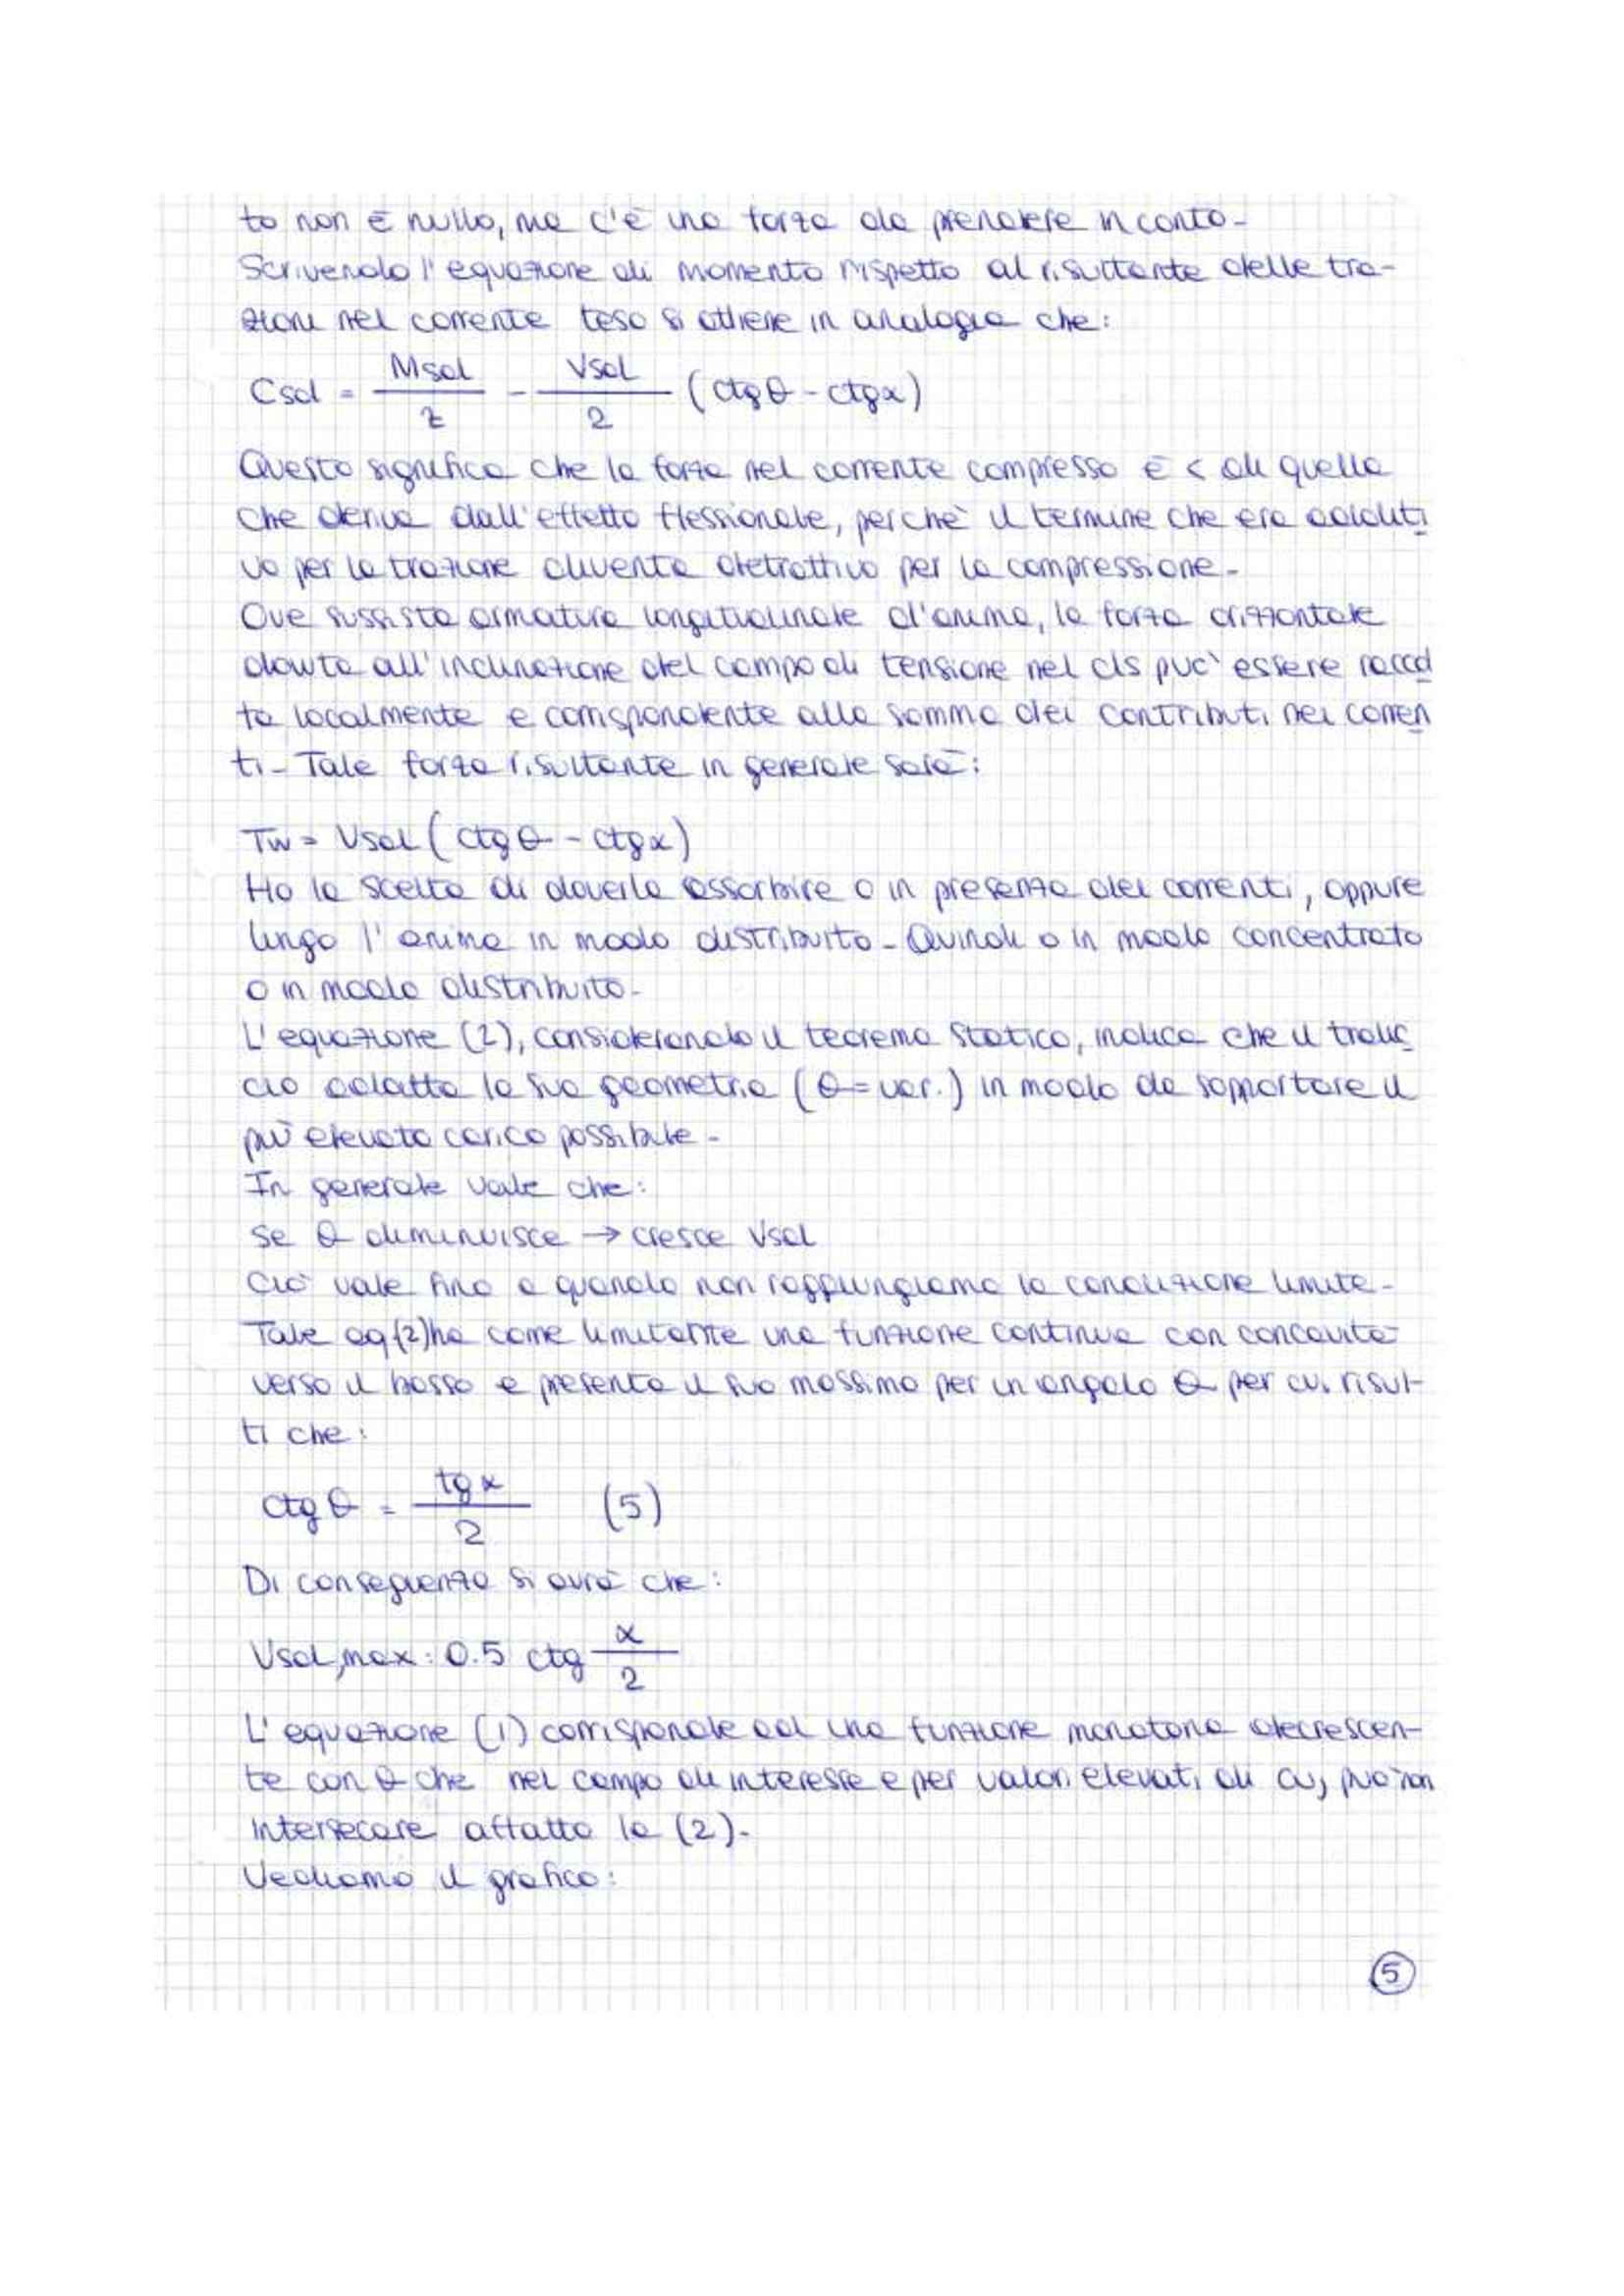 to non è nullo, ma c'è una forza da prendere in conto-
Scrivendo l'equazione di momento rispetto al risultante delle tra-
zioni nel corrente teso si ottiene in analogia che:
Csd = Msd/z - Vsd/2 (ctgθ - ctgα)
Questo significa che la forza nel corrente compresso è < di quella
che deriva dall'effetto flessionale, perchè il termine che era additi
vo per la trazione diventa detrattivo per la compressione-
Ove sussista armatura longitudinale d'anima, la forza orizzontale
dovuta all'inclinazione del campo di tensione nel cls può essere raccol
ta localmente e corrispondente alla somma dei contributi nei corren
ti- Tale forza risultante in generale sarà:
Tw = Vsd (ctgθ - ctgα)
Ho la scelta di doverla assorbire o in presenza dei correnti, oppure
lungo l'anima in modo distribuito- Quindi o in modo concentrato
o in modo distribuito-
L'equazione (2), considerando il teorema statico, indica che il tralic
cio adatta la sua geometria (θ=var.) in modo da sopportare il
più elevato carico possibile-
In generale vale che:
Se θ diminuisce → cresce Vsd
Ciò vale fino a quando non raggiungiamo la condizione limite-
Tale eq(2) ha come limitante una funzione continua con concavità
verso il basso e presenta il suo massimo per un angolo θ per cui risul-
ti che:
ctgθ = tgα/2 (5)
Di conseguenza si avrà che:
Vsd,max: 0.5 ctg α/2
L'equazione (1) corrisponde ad una funzione monotona decrescen-
te con θ che nel campo di interesse e per valori elevati di ω, può non
intersecare affatto la (2)-
Vediamo il grafico:
5